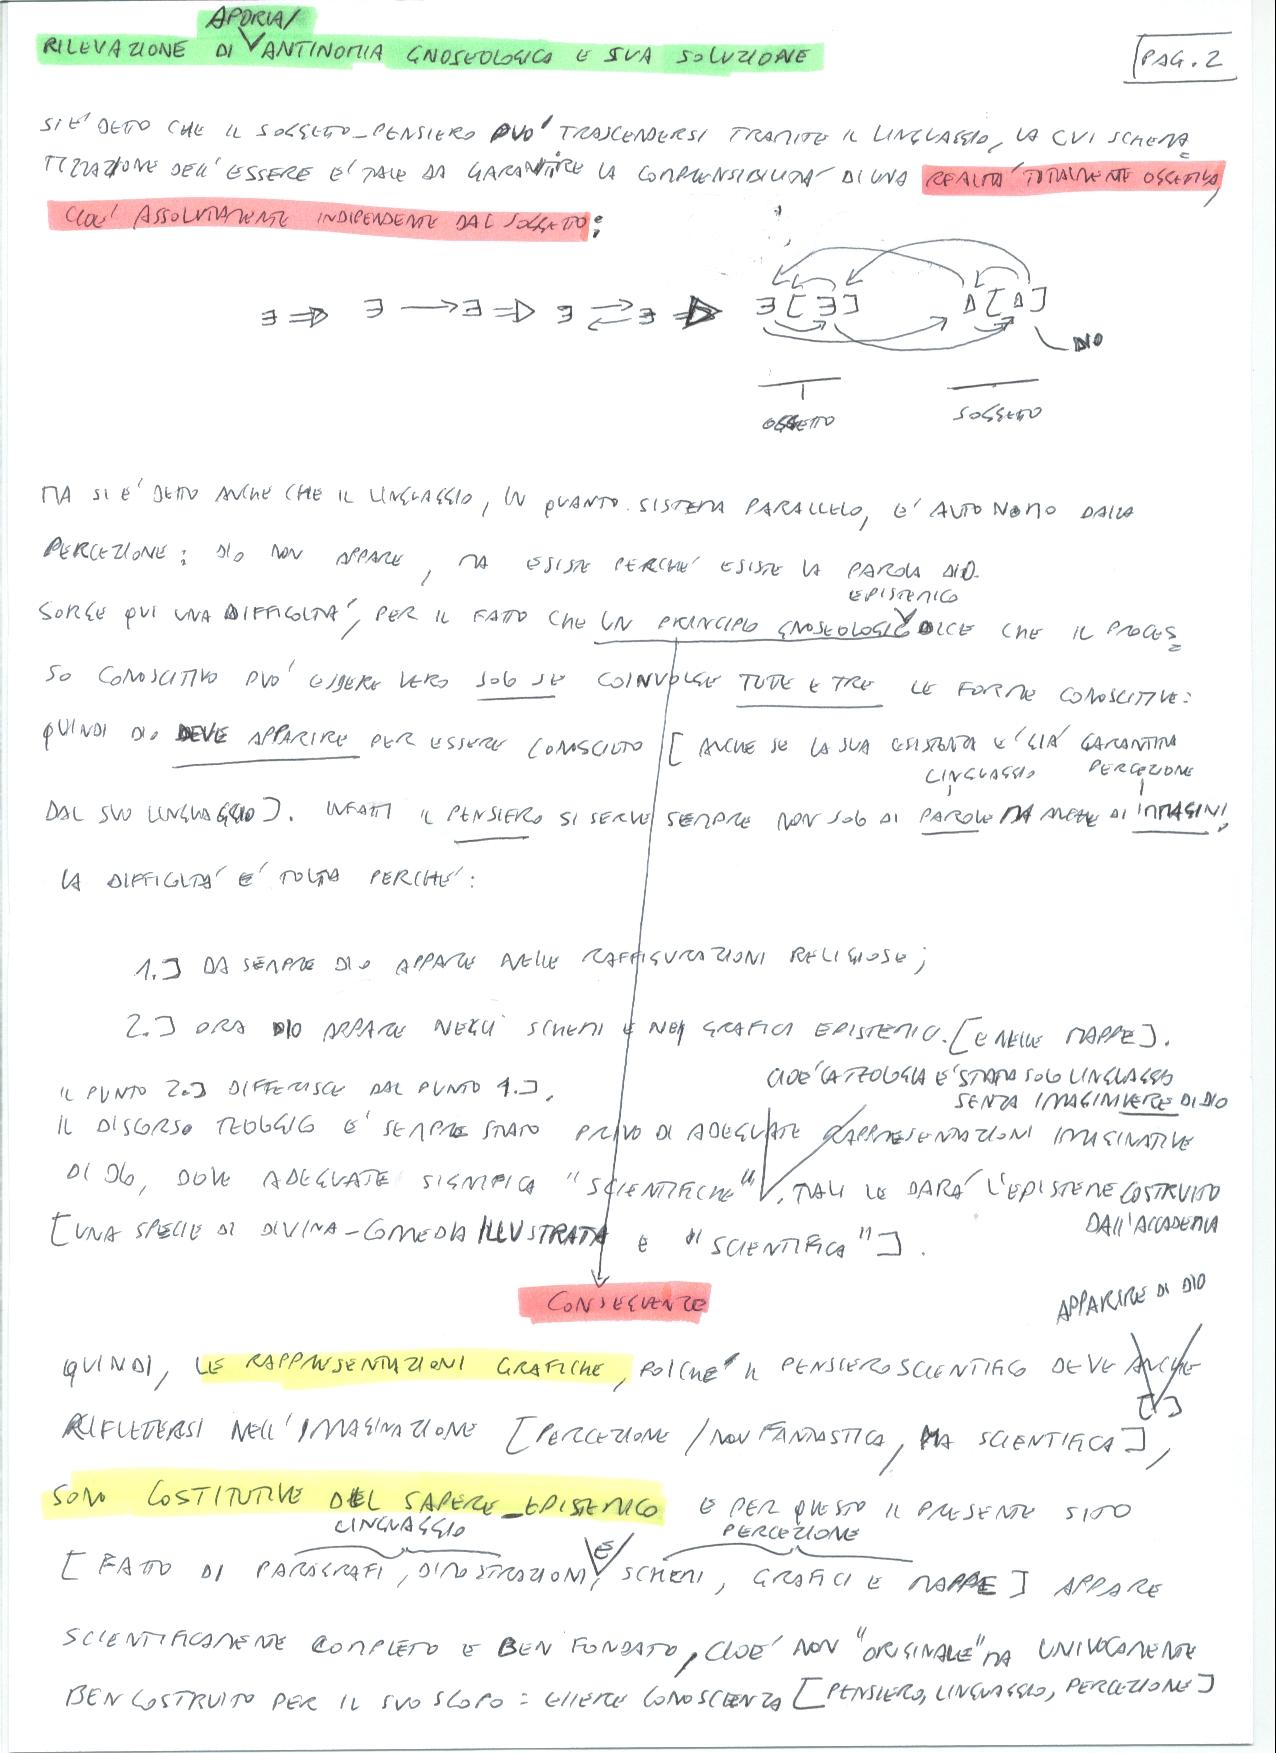 APORIA/
RILEVAZIONE DI ANTINOMIA GNOSEOLOGICA E SUA SOLUZIONE
PAG. 2
SI E' DETTO CHE IL SOGGETTO_PENSIERO PUO' TRASCENDERSI TRAMITE IL LINGUAGGIO, LA CUI SCHEMA=
TIZZAZIONE DELL'ESSERE E' TALE DA GARANTIRE LA COMPRENSIBILITA' DI UNA REALTA' TOTALMENTE OGGETTIVA,
CIOE' ASSOLUTAMENTE INDIPENDENTE DAL SOGGETTO:
∃ ⇒ ∃ → ∃ ⇒ ∃ ⇄ ∃ ⇒ ∃ [∃] Δ [Δ]
DIO
OGGETTO SOGGETTO
MA SI E' DETTO ANCHE CHE IL LINGUAGGIO, IN QUANTO SISTEMA PARALLELO, E' AUTONOMO DALLA
PERCEZIONE: DIO NON APPARE, MA ESISTE PERCHE' ESISTE LA PAROLA DIO.
EPISTEMICO
SORGE QUI UNA DIFFICOLTA', PER IL FATTO CHE UN PRINCIPIO GNOSEOLOGICO DICE CHE IL PROCES=
SO CONOSCITIVO PUO' ESSERE VERO SOLO SE COINVOLGE TUTTE E TRE LE FORME CONOSCITIVE:
QUINDI DIO DEVE APPARIRE PER ESSERE CONOSCIUTO [ANCHE SE LA SUA ESISTENZA E' GIA' GARANTITA
LINGUAGGIO PERCEZIONE
DAL SUO LINGUAGGIO]. INFATTI IL PENSIERO SI SERVE SEMPRE NON SOLO DI PAROLE MA ANCHE DI IMMAGINI.
LA DIFFICOLTA' E' TOLTA PERCHE':
1.] DA SEMPRE DIO APPARE NELLE RAFFIGURAZIONI RELIGIOSE;
2.] ORA DIO APPARE NEGLI SCHEMI E NEI GRAFICI EPISTEMICI. [E NELLE MAPPE].
IL PUNTO 2.] DIFFERISCE DAL PUNTO 1.].
CIOE' LA TEOLOGIA E' STATA SOLO LINGUAGGIO
SENZA IMAGINI VERE DI DIO
IL DISCORSO TEOLOGICO E' SEMPRE STATO PRIVO DI ADEGUATE RAPPRESENTAZIONI IMAGINATIVE
DI DIO, DOVE ADEGUATE SIGNIFICA "SCIENTIFICHE". TALI LE DARA' L'EPISTEME COSTRUITO
DALL'ACCADEMIA
[UNA SPECIE DI DIVINA-COMEDIA ILLUSTRATA E "SCIENTIFICA"].
CONSEGUENZE
APPARIRE DI DIO
QUINDI, LE RAPPRESENTAZIONI GRAFICHE, POICHE' IL PENSIERO SCIENTIFICO DEVE ANCHE
[]
RIFLETTERSI NELL'IMMAGINAZIONE [PERCEZIONE/NON FANTASTICA, MA SCIENTIFICA],
SONO COSTITUTIVE DEL SAPERE_EPISTEMICO E PER QUESTO IL PRESENTE SITO
LINGUAGGIO E PERCEZIONE
[FATTO DI PARAGRAFI, DIMOSTRAZIONI, SCHEMI, GRAFICI E MAPPE] APPARE
SCIENTIFICAMENTE COMPLETO E BEN FONDATO, CIOE' NON "ORIGINALE" MA UNIVOCAMENTE
BEN COSTRUITO PER IL SUO SCOPO: ESSERE CONOSCENZA [PENSIERO, LINGUAGGIO, PERCEZIONE]